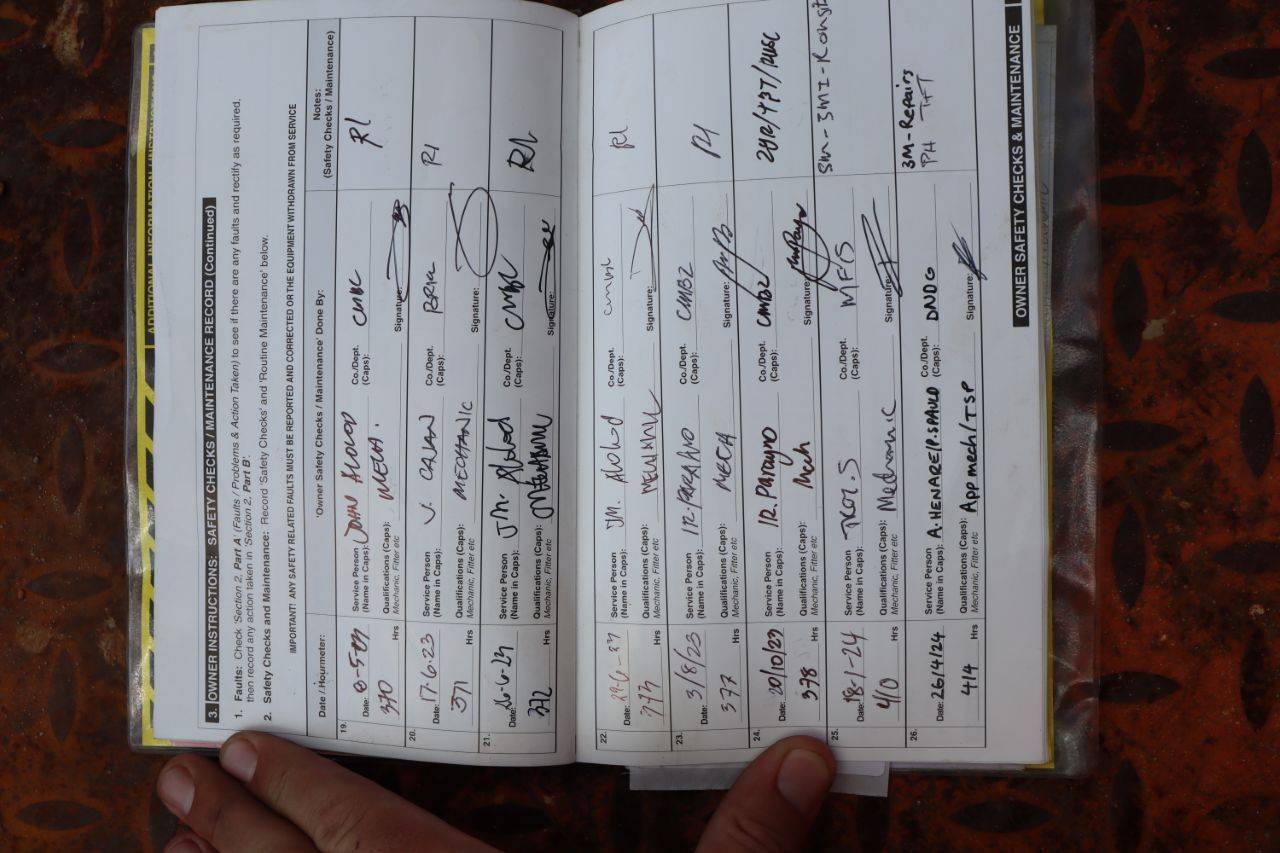 ADDITIONAL INFORMATION / INSTRUCTION
3. OWNER INSTRUCTIONS: SAFETY CHECKS / MAINTENANCE RECORD (Continued)
1. Faults: Check 'Section 2, Part A' (Faults / Problems & Action Taken) to see if there are any faults and rectify as required,
then record any action taken in 'Section 2, Part B'.
2. Safety Checks and Maintenance: Record 'Safety Checks' and 'Routine Maintenance' below.
IMPORTANT! ANY SAFETY RELATED FAULTS MUST BE REPORTED AND CORRECTED OR THE EQUIPMENT WITHDRAWN FROM SERVICE
Date / Hourmeter:
'Owner Safety Checks / Maintenance' Done By:
Notes:
(Safety Checks / Maintenance)
19.
Date:
370
Hrs
Service Person
(Name in Caps): JOHN
Qualifications (Caps): MECH.
Mechanic, Fitter etc
Co./Dept.
(Caps):
Signature:
R1
20.
Date: 17-6-23
371
Hrs
Service Person
(Name in Caps):
Qualifications (Caps): MECHANIC
Mechanic, Fitter etc
Co./Dept.
(Caps):
Signature:
R1
21.
Date:
372
Hrs
Service Person
(Name in Caps): JM.
Qualifications (Caps):
Mechanic, Fitter etc
Co./Dept.
(Caps):
Signature:
R1
22.
Date:
Hrs
Service Person
(Name in Caps): JM.
Qualifications (Caps):
Mechanic, Fitter etc
Co./Dept.
(Caps):
Signature:
R1
23.
Date: 3/8/23
377
Hrs
Service Person
(Name in Caps):
Qualifications (Caps): MECH
Mechanic, Fitter etc
Co./Dept.
(Caps): CMBZ
Signature:
R1
24.
Date: 20/10/23
378
Hrs
Service Person
(Name in Caps):
Qualifications (Caps): Mech
Mechanic, Fitter etc
Co./Dept.
(Caps): CMBZ
Signature:
25.
Date: 18-1-24
410
Hrs
Service Person
(Name in Caps):
Qualifications (Caps): Mechanic
Mechanic, Fitter etc
Co./Dept.
(Caps): MFS
Signature:
26.
Date: 26/4/24
414
Hrs
Service Person
(Name in Caps): A. HENARE/P. SPAULD
Qualifications (Caps): App mech/TSP
Mechanic, Fitter etc
Co./Dept.
(Caps): DNDG
Signature:
3M-Repairs
PA TFT
OWNER SAFETY CHECKS & MAINTENANCE